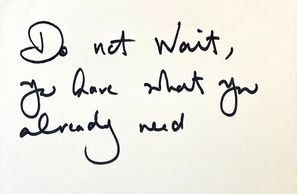 Do not Wait,
you have what you
already need